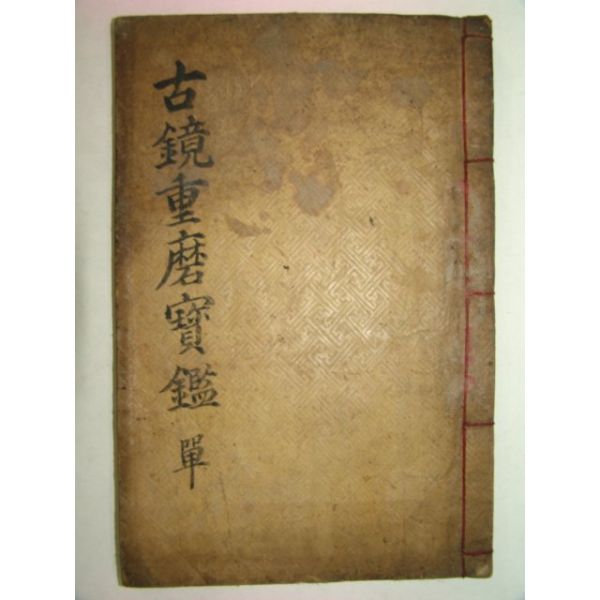 古鏡重磨寶鑑 單